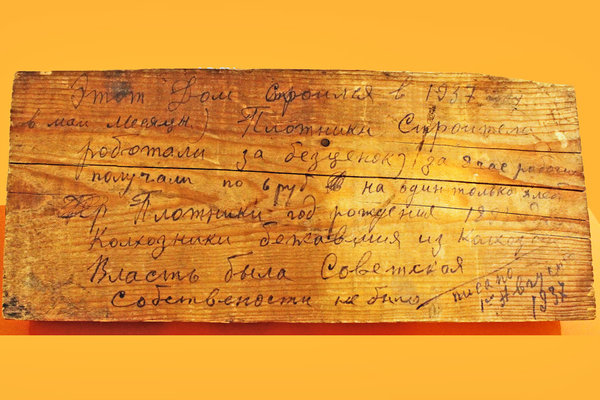 Этот Дом строился в 1937 году
в май месяцы) Плотники строители
роботали за безценок) за
получали по 6 руб на один только хлеб
Плотники год рождения
Колхозники бежавшия из колхоз
Власть была Советская
Собствености не было писано
1го Августа
1937